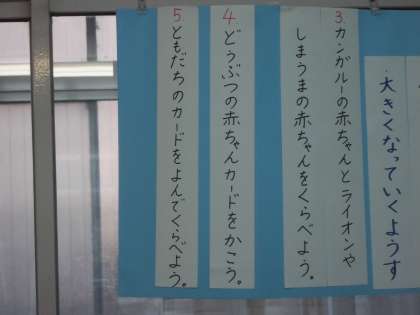 大きくなっていくようす
3.カンガルーの赤ちゃんとライオンや
しまうまの赤ちゃんをくらべよう。
4.どうぶつの赤ちゃんカードをかこう。
5.ともだちのカードをよんでくらべよう。